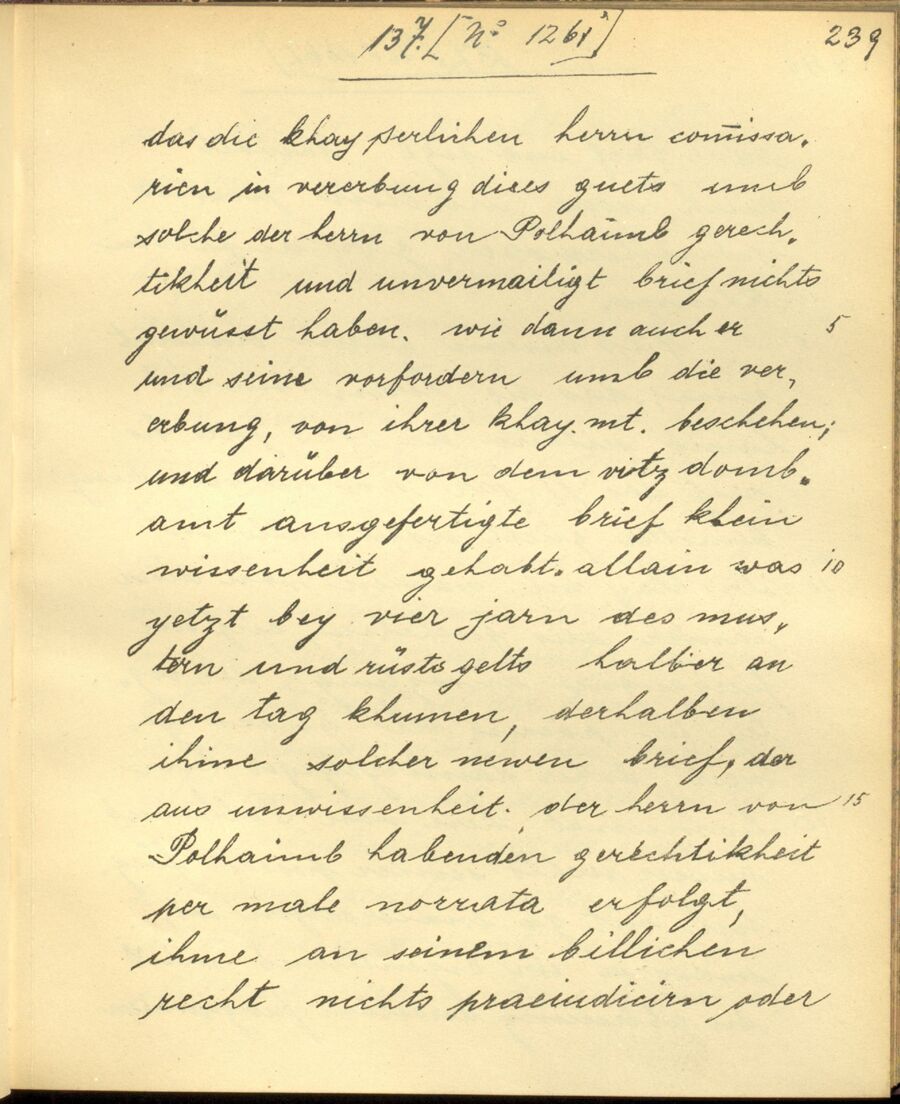 137. [No 1261]
239
das die khayserlichen herrn com̄issa,
rien in vererbung dises guets umb
solche der herrn von Polhaimb gerech,
tikheit und unvermailigt brief nichts
gewüsst haben. wie dann auch er 5
und seine vorfordern umb die ver,
erbung, von ihrer khay. mt. beschehen,
und darüber von dem vitzdomb,
amt ausgefertigte brief khein
wissenheit gehabt. allain was 10
yetzt bey vier jarn des mus,
tern und rüstsgelts halber an
den tag khumen, derhalben
ihme solcher newen brief, der
aus unwissenheit der herrn von 15
Polhaimb habenden gerechtikheit
per male norrata erfolgt,
ihme an seinem billichen
recht nichts praeiudicirn oder